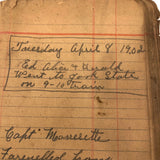 Tuesday April 8 1902
Ed Alice & Harold
Went to York State
on 9-10 Train
Capt